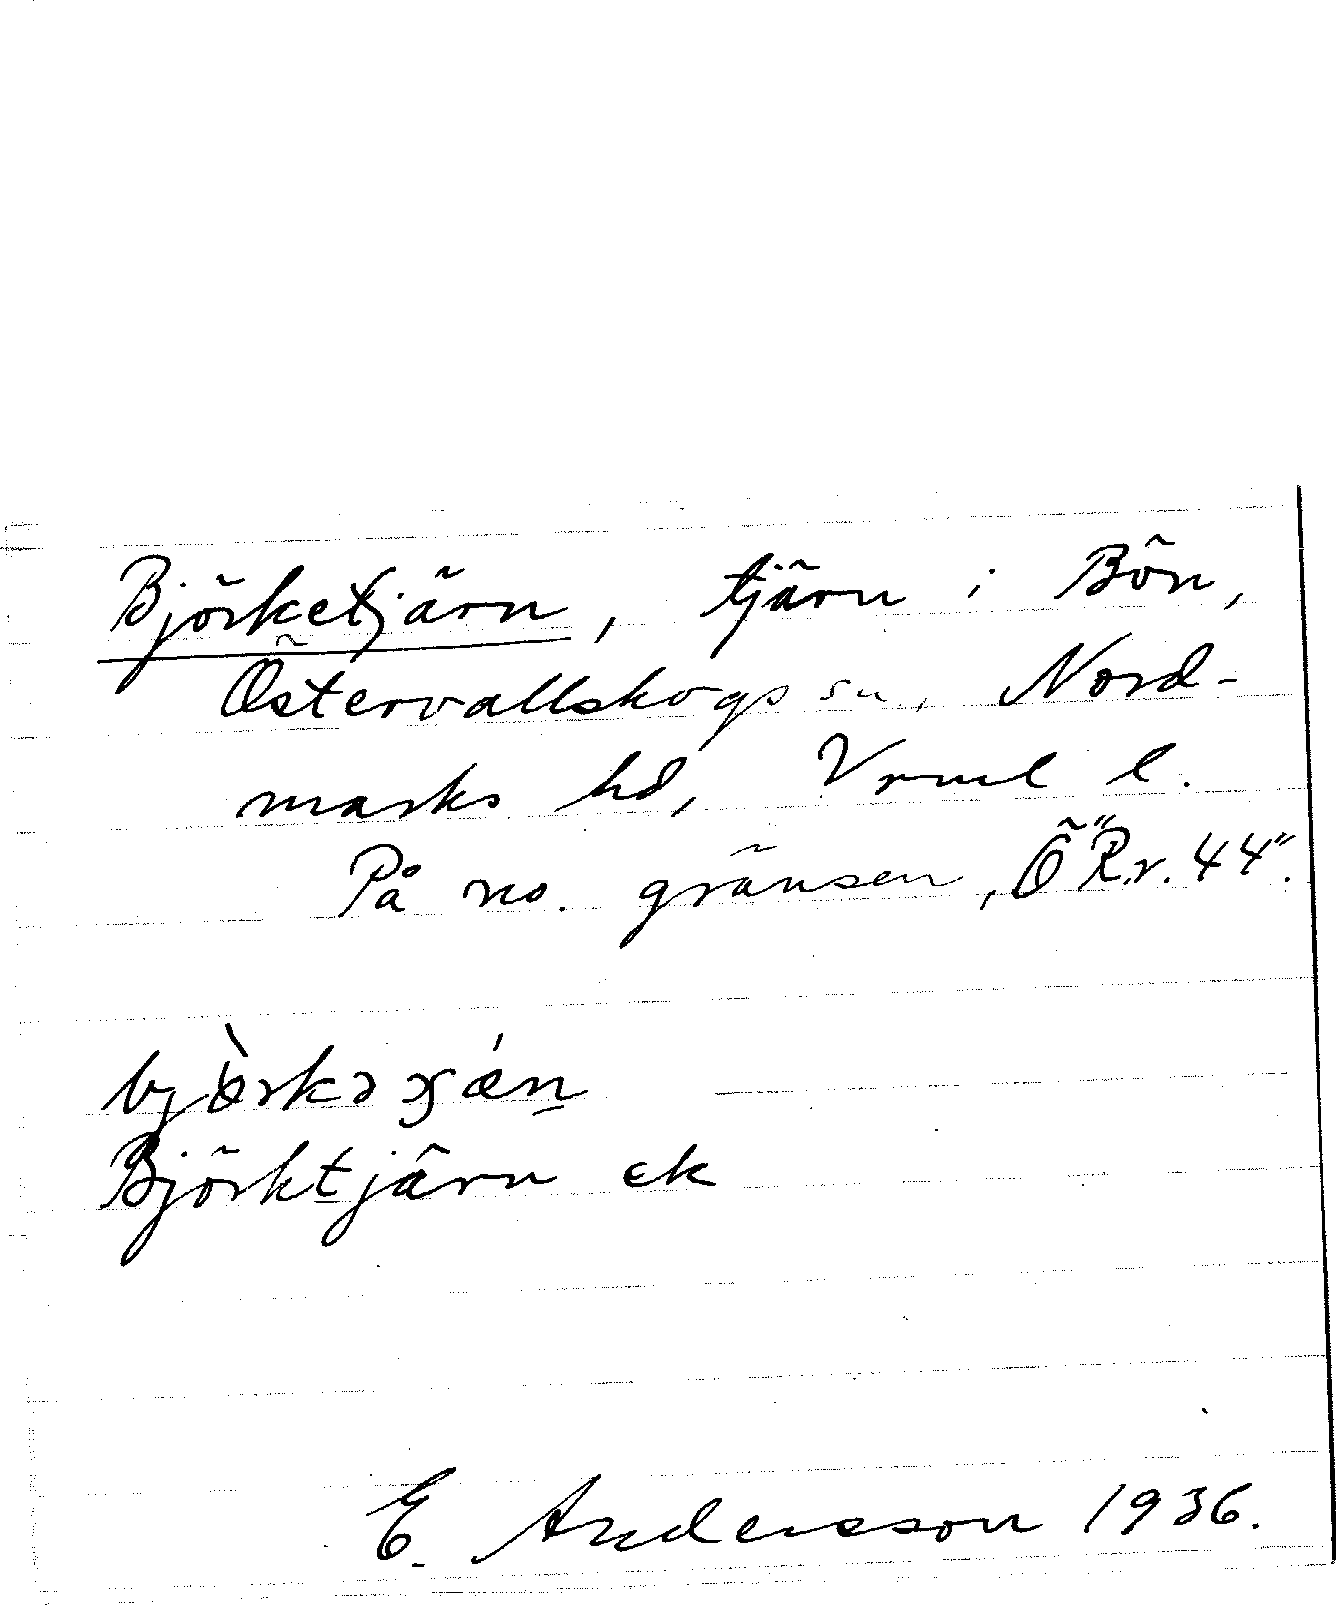 Björketjärn, tjärn i Bön,
Östervallskogs sn, Nord-
marks hd, Vrml l.
På no. gränsen, Ö "R.r. 44".
Björktjärn ek
E. Andersson 1936.